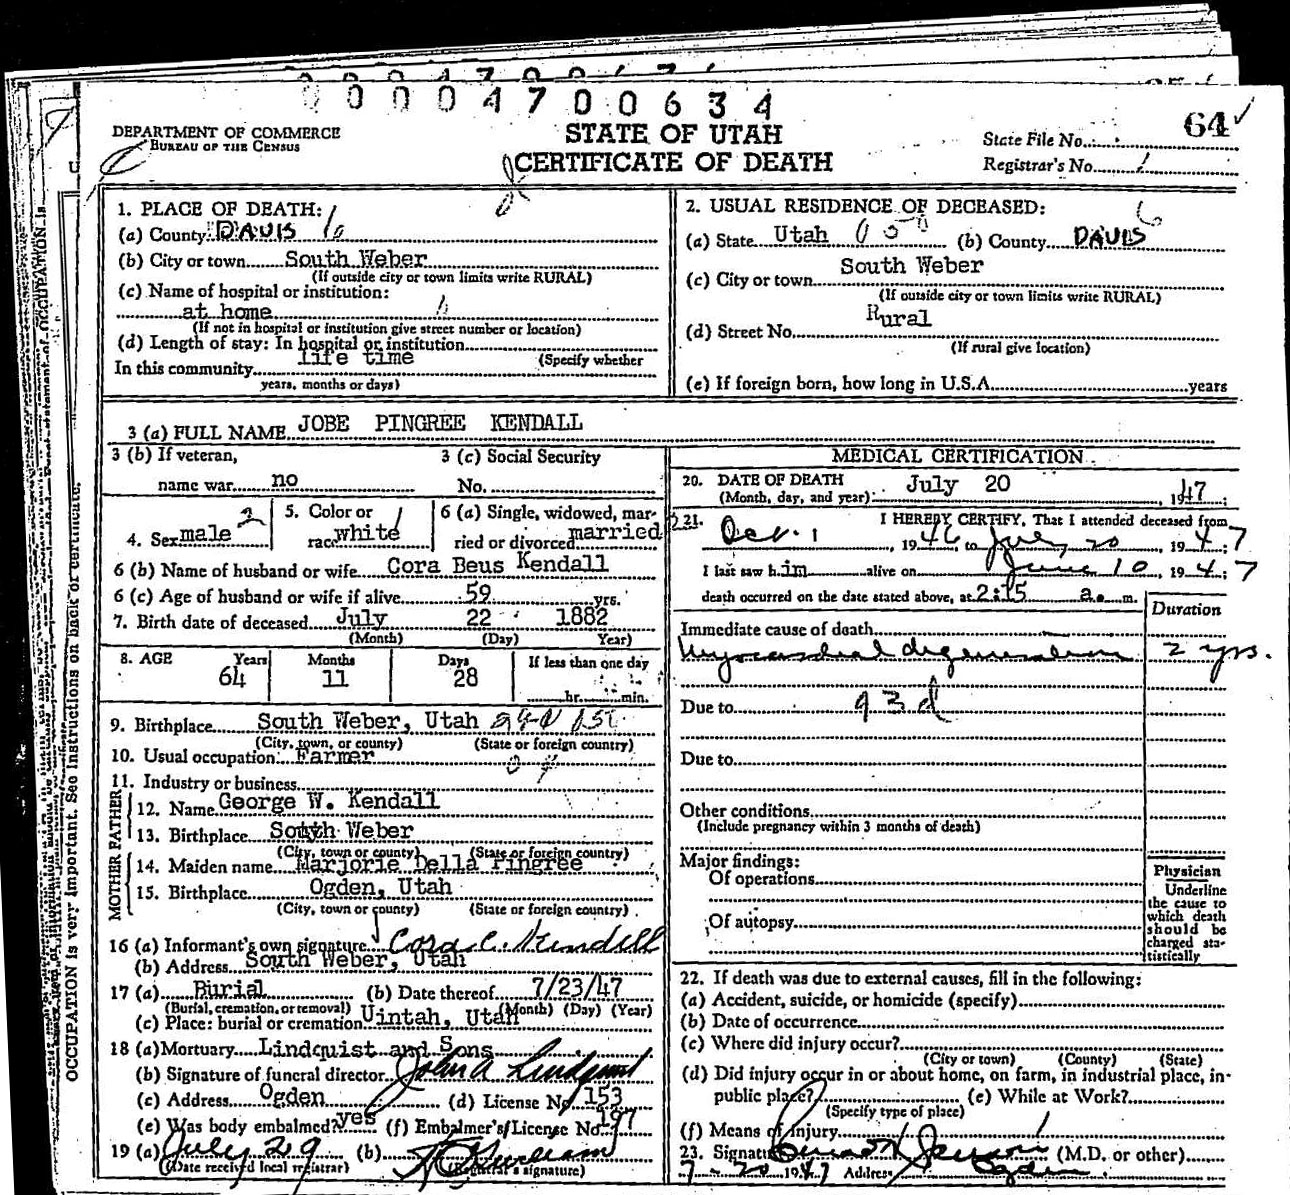 0 0 0 0 4 7 0 0 6 3 4
DEPARTMENT OF COMMERCE
BUREAU OF THE CENSUS
STATE OF UTAH
CERTIFICATE OF DEATH
64
State File No.
Registrar's No. 1
1. PLACE OF DEATH:
(a) County DAVIS
(b) City or town South Weber
(If outside city or town limits write RURAL)
(c) Name of hospital or institution:
at home
(If not in hospital or institution give street number or location)
(d) Length of stay: In hospital or institution
In this community life time (Specify whether
years, months or days)
2. USUAL RESIDENCE OF DECEASED:
(a) State Utah (b) County DAVIS
(c) City or town South Weber
(If outside city or town limits write RURAL)
(d) Street No. Rural
(If rural give location)
(e) If foreign born, how long in U.S.A. years
3 (a) FULL NAME JOBE PINGREE KENDALL
3 (b) If veteran,
name war no
3 (c) Social Security
No.
4. Sex male
5. Color or
race white
6 (a) Single, widowed, mar-
ried or divorced married
6 (b) Name of husband or wife Cora Beus Kendall
6 (c) Age of husband or wife if alive 59 yrs.
7. Birth date of deceased July 22 1882
(Month) (Day) Year)
8. AGE Years Months Days If less than one day
64 11 28 hr. min.
9. Birthplace South Weber, Utah
(City, town, or county) (State or foreign country)
10. Usual occupation: Farmer
11. Industry or business
FATHER
12. Name George W. Kendall
13. Birthplace South Weber
(City, town or county) (State or foreign country)
MOTHER
14. Maiden name Marjorie Della Pingree
15. Birthplace Ogden, Utah
(City, town or county) (State or foreign country)
16 (a) Informant's own signature Cora C. Kendell
(b) Address South Weber, Utah
17 (a) Burial (b) Date thereof 7/23/47
(Burial, cremation, or removal) (Month) (Day) (Year)
(c) Place: burial or cremation Uintah, Utah
18 (a) Mortuary Lindquist and Sons
(b) Signature of funeral director John A Lindquist
(c) Address Ogden (d) License No. 153
(e) Was body embalmed? yes (f) Embalmer's License No. 197
19 (a) July 29 (b)
(Date received local registrar) (Registrar's signature)
MEDICAL CERTIFICATION
20. DATE OF DEATH
(Month, day, and year): July 20, 1947;
21. I HEREBY CERTIFY, That I attended deceased from
1946, to July 20, 1947;
I last saw him alive on June 10, 1947
death occurred on the date stated above, at 2:15 a. m.
Duration
Immediate cause of death
Myocardial degeneration 2 yrs.
Due to 93d
Due to
Other conditions
(Include pregnancy within 3 months of death)
Major findings:
Of operations
Of autopsy
Physician
Underline
the cause to
which death
should be
charged sta-
tistically
22. If death was due to external causes, fill in the following:
(a) Accident, suicide, or homicide (specify)
(b) Date of occurrence
(c) Where did injury occur?
(City or town) (County) (State)
(d) Did injury occur in or about home, on farm, in industrial place, in-
public place? (e) While at Work?
(Specify type of place)
(f) Means of injury
23. Signature (M.D. or other)
7-20 1947 Address Ogden
OCCUPATION is very important. See instructions on back of certificate.